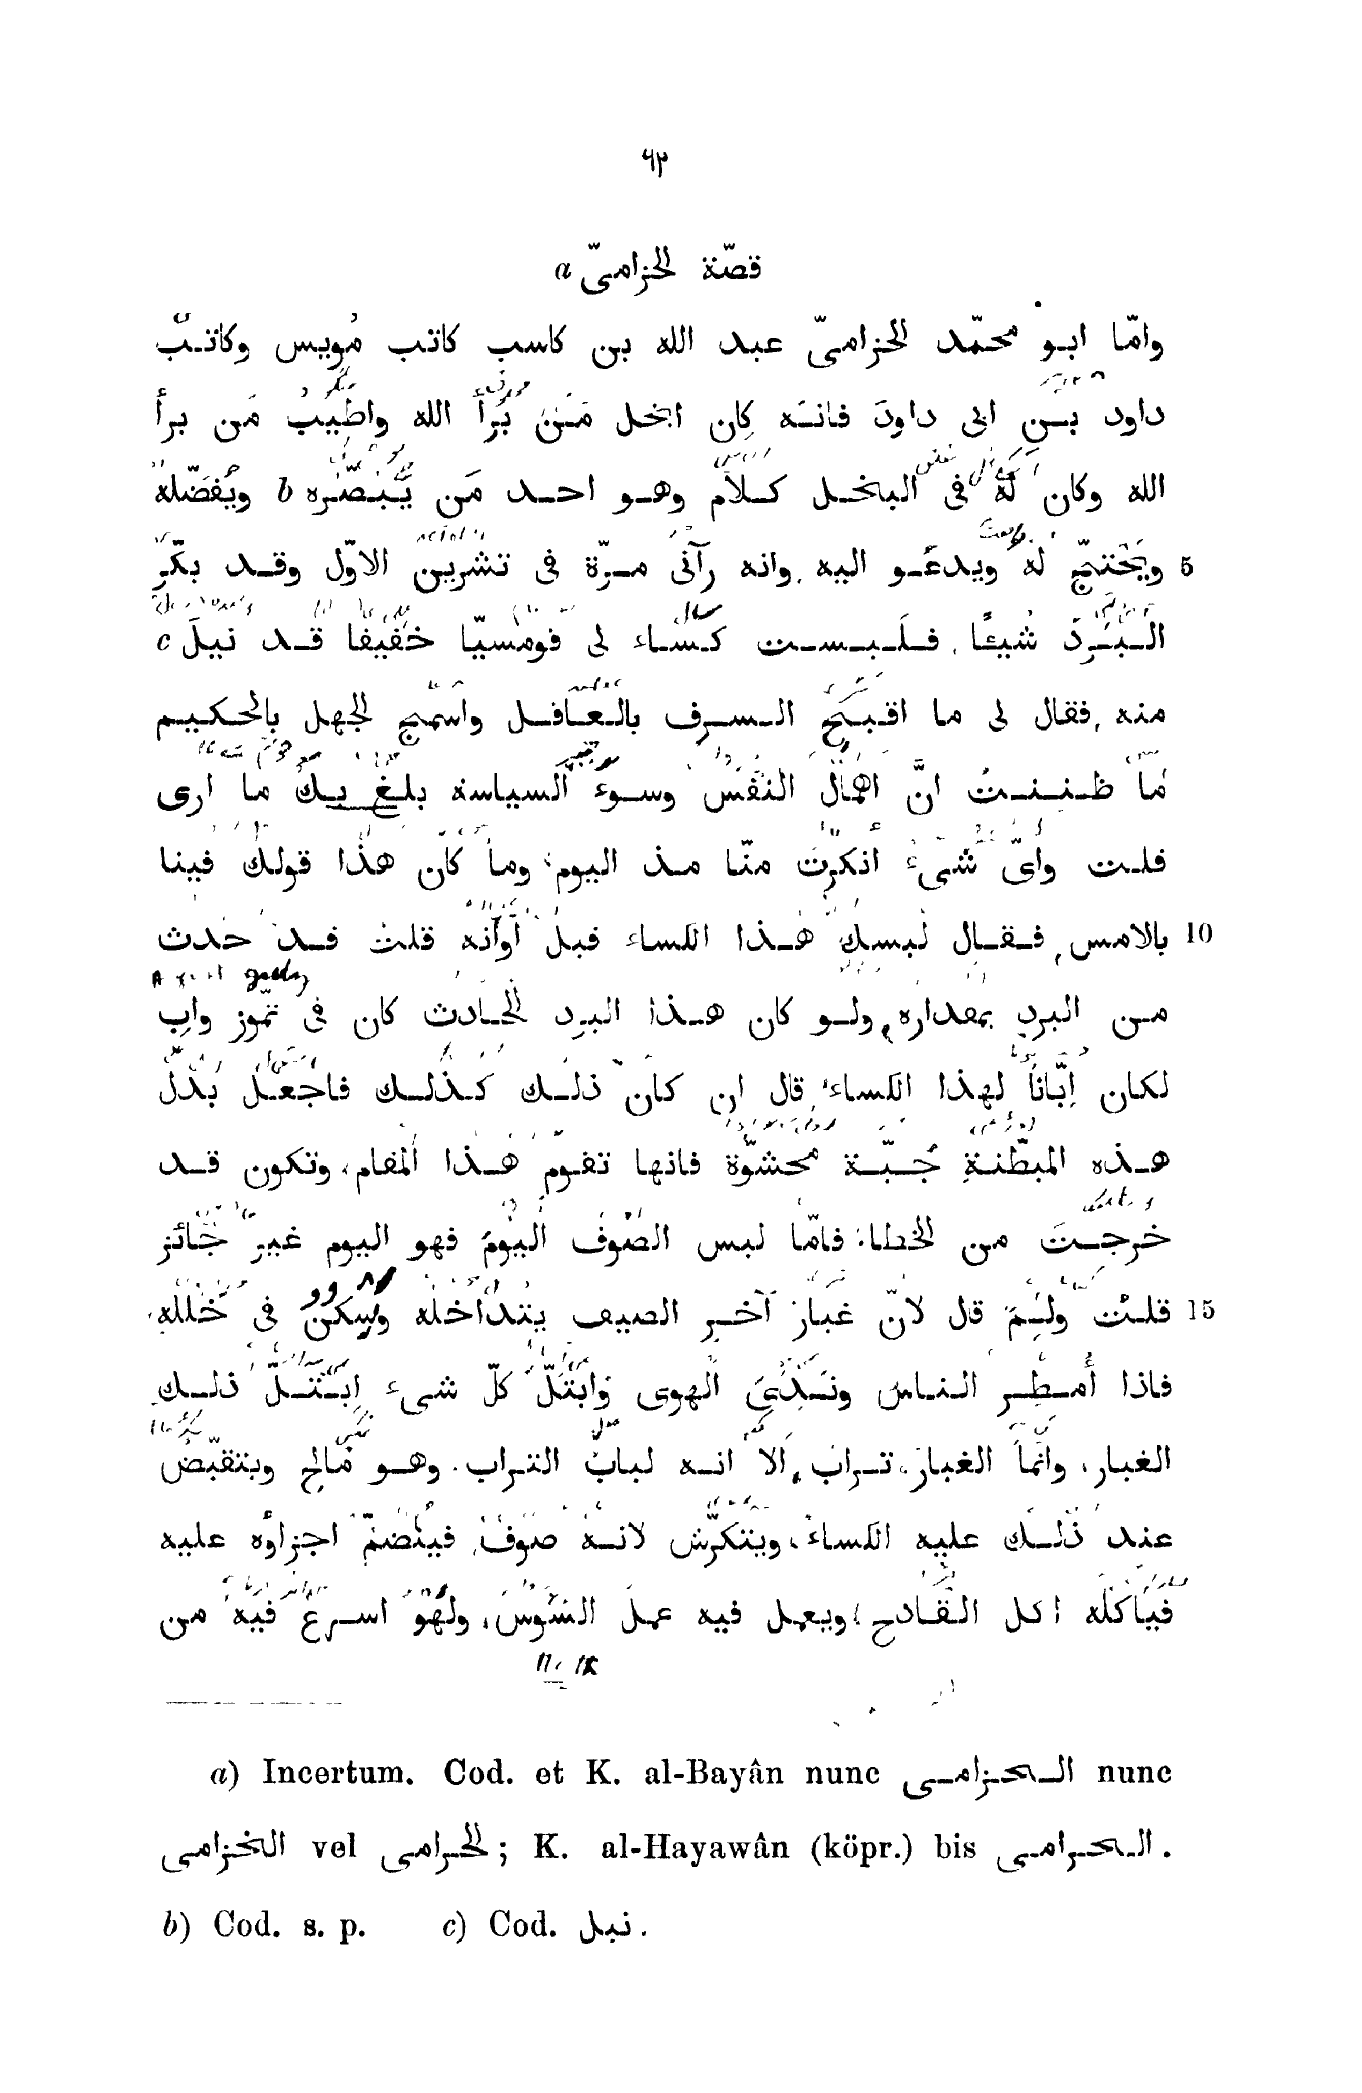 ٦٢
قصّة الحزامىّ a
وامّا ابو محمّد الحزامىّ عبد الله بن كاسب كاتب مُويس وكاتب
داود بن ابى داود فانّه كان ابخل مَن بَرأ الله واطيبَ مَن برأ
الله وكان له فى البخل كلام وهو احد مَن يَنصُره b ويُفضّله
5 ويَحْتجّ له ويدعُو اليه وانه رآنى مرّة فى تشرين الاوّل وقد بكّر
البَرد شيئًا فلَبست كساء لى قومسيّا خفيفا قد نيلَ c
منه فقال لى ما اقبَح السرف بالعاقل واسمج الجهل بالحكيم
ما ظننتُ انّ اهمال النفس وسوء السياسة بلغ بك ما ارى
قلت واىّ شىء انكرتَ منّا مذ اليوم وما كان هذا قولك فينا
10 بالامس فقال لبسك هذا الكساء قبل أوانه قلت قد حدث
من البرد بمقداره ولو كان هذا البرد الحادث كان فى تمّوز وابِ
لكان إبّاناً لهذا الكساء قال ان كان ذلك كذلك فاجعل بَدل
هذه المبطّنة جُبّة محشوّة فانها تقوم هذا المقام وتكون قد
خرجتَ من الخطا فامّا لبس الصُوف اليومَ فهو اليوم غير جَائز
15 قلت ولِمَ قال لانّ غبار آخر الصيف يتداخله ويسكن فى خَلله
فاذا أُمطر الناس ونَدِىَ الهوى وَابتَلّ كلّ شىء اِبتَلّ ذلك
الغبار، وانّما الغبار تراب الا انه لباب التراب. وهو مَالح ويتقبّض
عند ذلك عليه الكساء، ويتكرّش لانه صوف فينضمّ اجزاؤه عليه
فيأكله اكل القَادح، ويعمل فيه عملَ السُوس، ولهُوَ اسرع فيه من
a) Incertum. Cod. et K. al-Bayân nunc الـحـزامـى nunc
الخزامى vel الحرامى; K. al-Hayawân (köpr.) bis الـحـرامـى.
b) Cod. s. p. c) Cod. نبل.